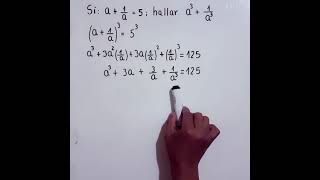 Si: a + 1/a = 5; hallar a³ + 1/a³
(a + 1/a)³ = 5³
a³ + 3a²(1/a) + 3a(1/a)² + (1/a)³ = 125
a³ + 3a + 3/a + 1/a³ = 125